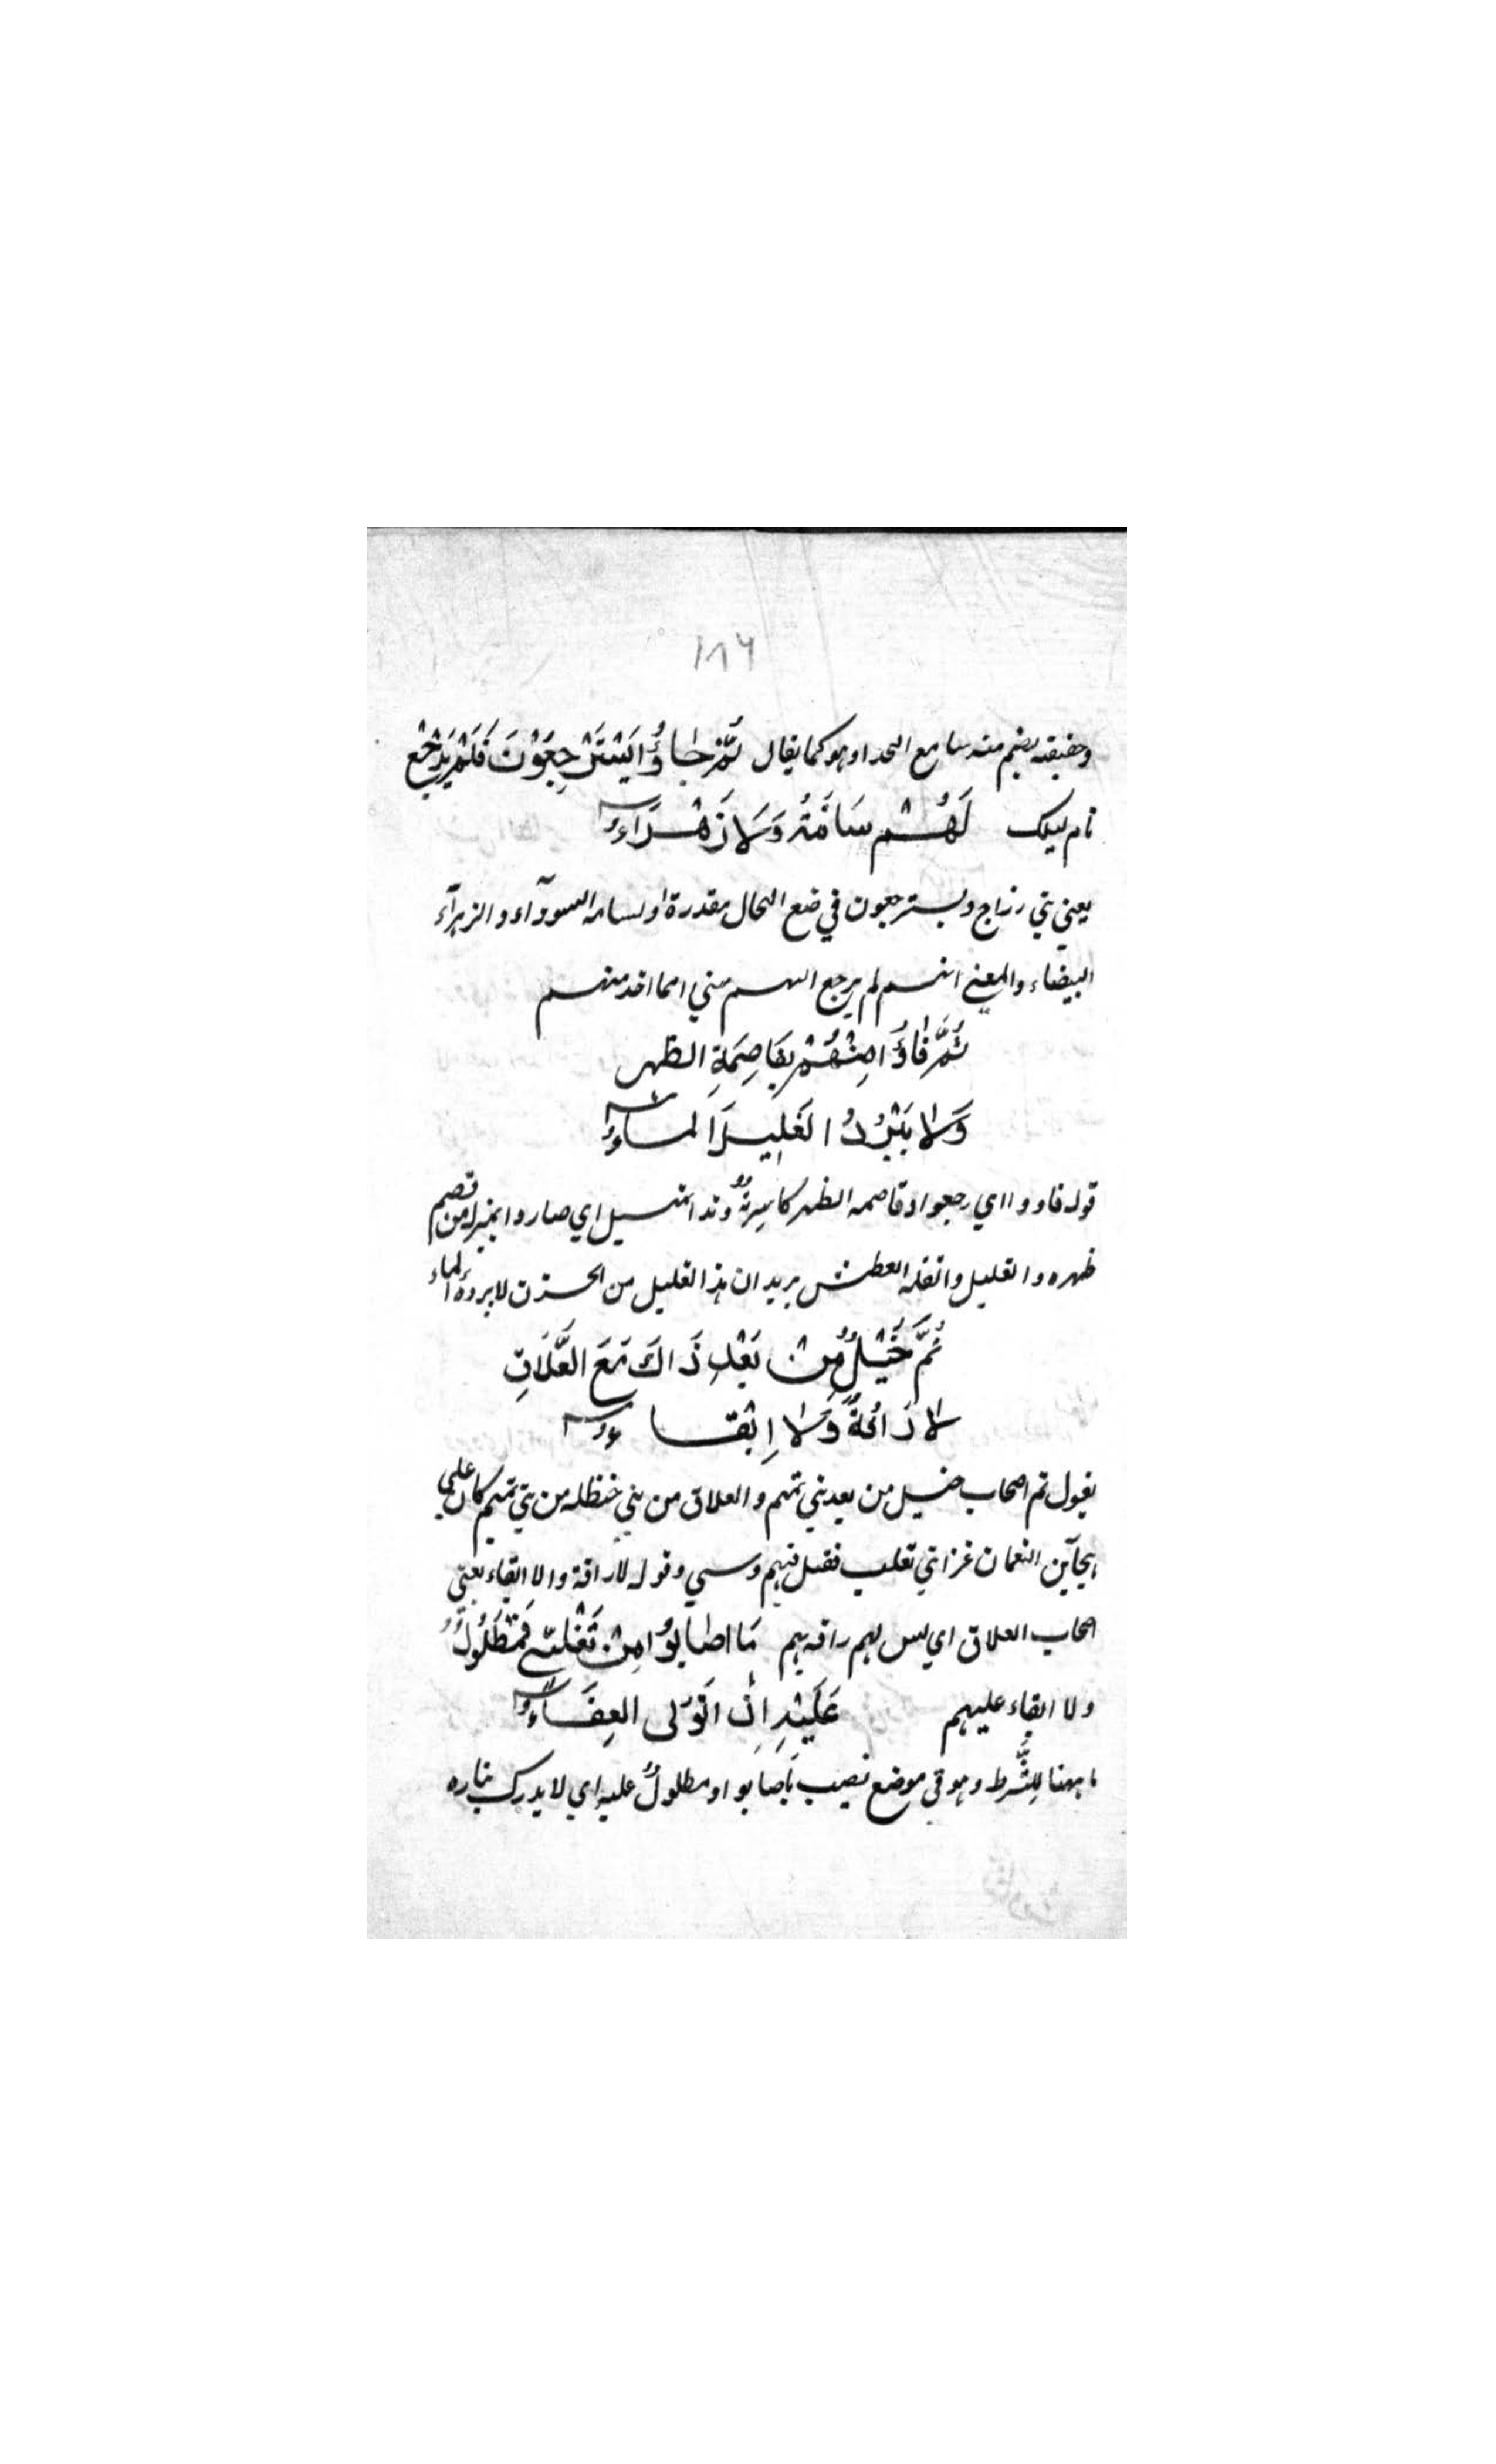 ١٨٦
وحقيقته يضم منه سامع الحداو هو كما يقال ثُمَّ جَاؤُا يَسْتَرْجِعُوْنَ فَلَمْ يَرْجِعْ
نام ليلك لَهُمْ سَامَةُ وَلَا زَهْرَاءُ
يعني بني رزاح ويسترجعون في ضع الحال مقدرة او لسامه السودآء والزهرآء
البيضاء والمعني انهم لم يرجع اليهم شي امما اخذ منهم
ثُمَّ فَاؤُا مِنْهُمْ بِقَاصِمَةِ الظهر
وَلَا يَبْرُدُ الغَلِيلَ الماءُ
قوله فاووا اي رجعوا وقاصمه الظهر كاسِرتُهُ وندا تمثيل اي صاروا بمنزله من قصم
ظهره والغليل والغله العطش يريد ان هذا الغليل من الحزن لا يرده الماء
ثُمَّ خَيْلٌ مِنْ بَعْدِ ذَاكَ مَعَ العَّلَاقِ
لا رَافَةٌ وَلَا اِبْقاءُ
يقول ثم اصحاب خيل من بعد بني تميم والعلاق من بني حنظله من بني تميم كان علي
هجآين النعمان غزا بني تغلب فقتل فيهم وسبي وقوله لا رافة والا ابقاء يعني
اصحاب العلاق اي ليس لهم رافه بهم مَا اصابُوا مِنْ تَغْلَبِي فَمَطْلُولٌ
ولا ابقاء عليهم عَلَيْهِ اِن اتَوَلى العِفَاءُ
ما ههنا لِلشَّرط وهو في موضع نصيب باصابوا ومطلولٌ عليه اي لا يدرك بثاره